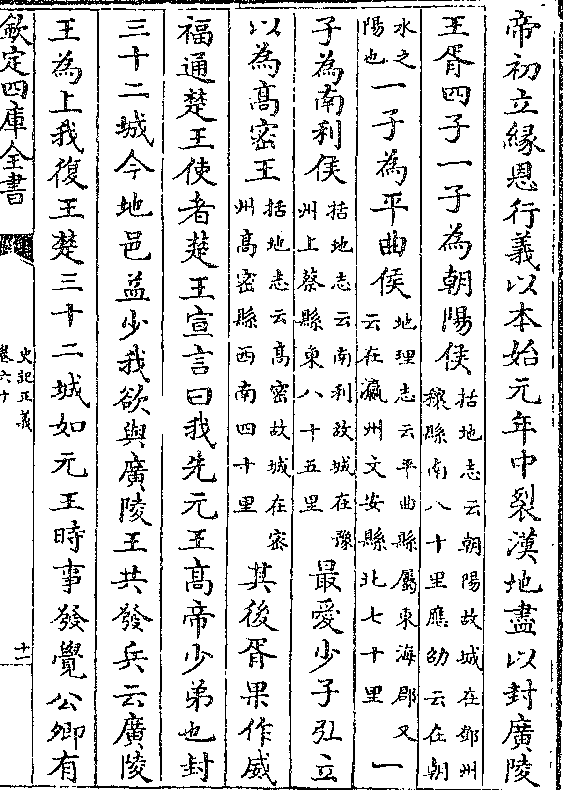 帝初立緣恩行義以本始元年中裂漢地盡以封廣陵
王胥四子一子為朝陽侯括地志云朝陽故城在鄧州穰縣南八十里應劭云在朝
水之陽也一子為平曲侯地理志云平曲縣屬東海郡又云在瀛州文安縣北七十里一
子為南利侯括地志云南利故城在豫州上蔡縣東八十五里最愛少子弘立
以為髙密王括地志云髙密故城在密州髙密縣西南四十里其後胥果作威
福通楚王使者楚王宣言曰我先元王髙帝少弟也封
三十二城今地邑益少我欲與廣陵王共發兵云廣陵
王為上我復王楚三十二城如元王時事發覺公卿有
欽定四庫全書
史記正義
卷六十
十一